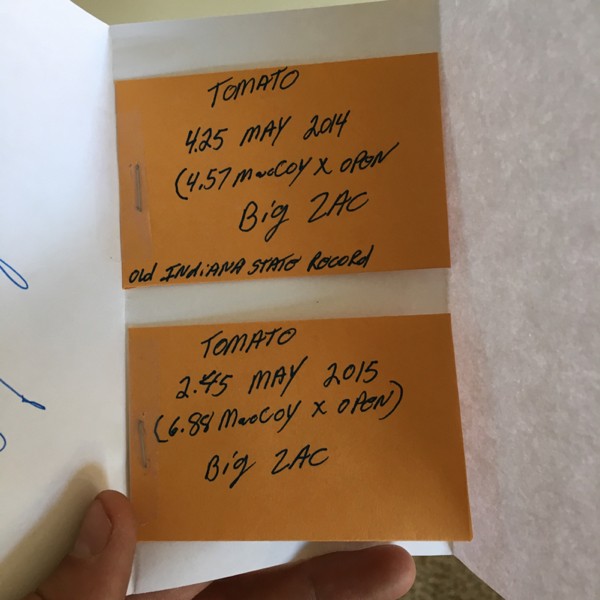 TOMATO
4.25 MAY 2014
(4.57 MacCOY X OPEN
Big ZAC
Old INdiANA STATE RECORD
TOMATO
2.45 MAY 2015
(6.88 MacCOY X OPEN)
Big ZAC